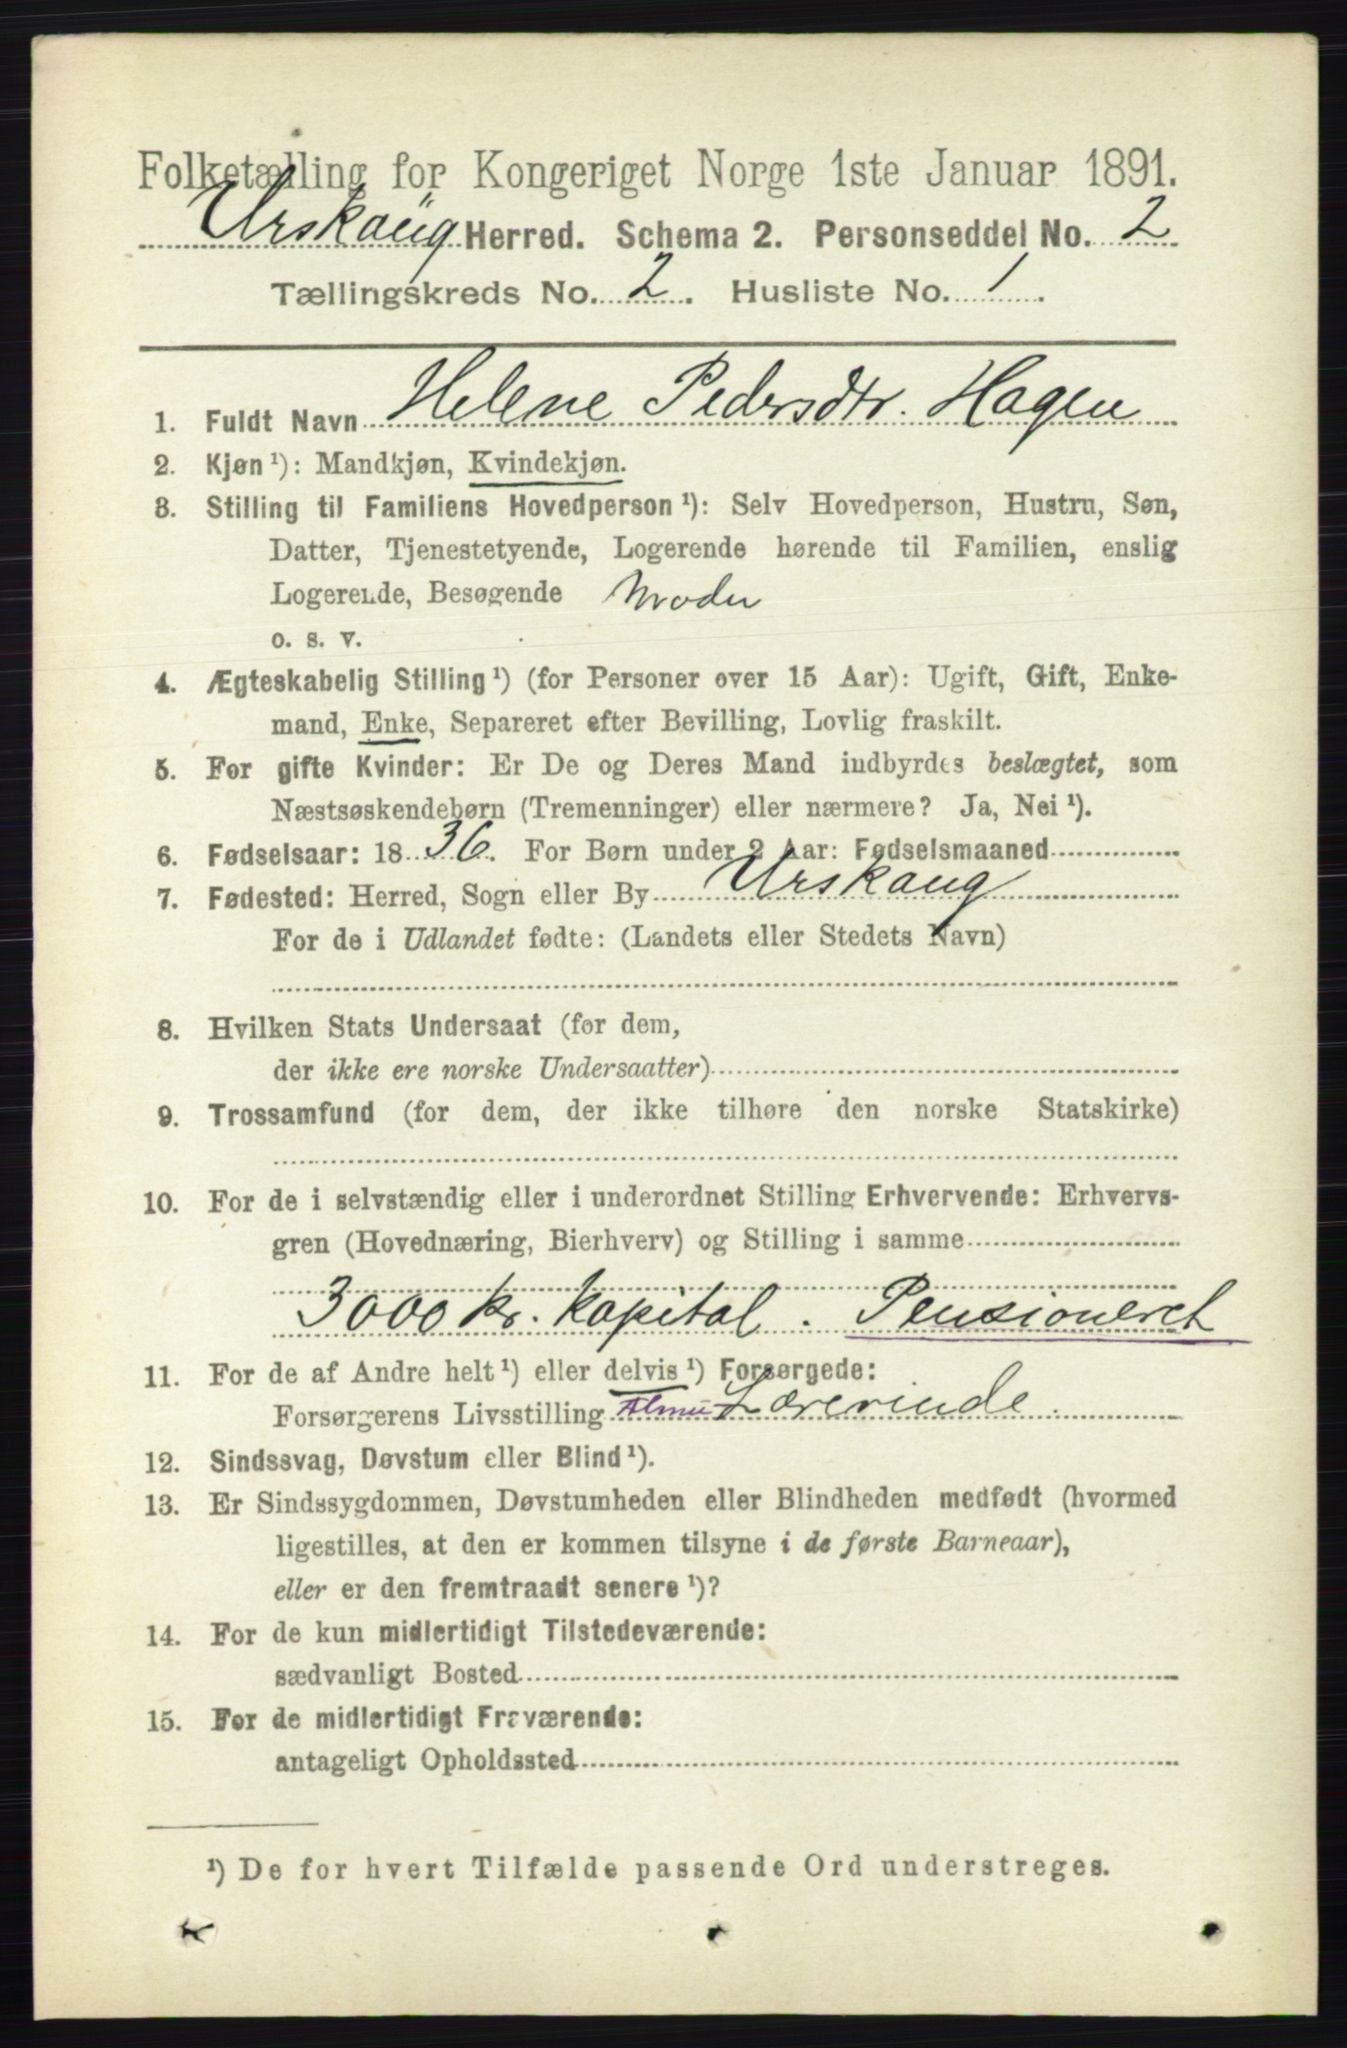 Folketælling for Kongeriget Norge 1ste Januar 1891.
Urskaug Herred. Schema 2. Personseddel No. 2
Tællingskreds No. 2. Husliste No. 1.
1. Fuldt Navn Helene Pedersdtr. Hagen
2. Kjøn ¹): Mandkjøn, Kvindekjøn.
3. Stilling til Familiens Hovedperson ¹): Selv Hovedperson, Hustru, Søn,
Datter, Tjenestetyende, Logerende hørende til Familien, enslig
Logerende, Besøgende Moder
o. s. v.
4. Ægteskabelig Stilling ¹) (for Personer over 15 Aar): Ugift, Gift, Enke-
mand, Enke, Separeret efter Bevilling, Lovlig fraskilt.
5. For gifte Kvinder: Er De og Deres Mand indbyrdes beslægtet, som
Næstsøskendebørn (Tremenninger) eller nærmere? Ja, Nei ¹).
6. Fødselsaar: 1836. For Børn under 2 Aar: Fødselsmaaned
7. Fødested: Herred, Sogn eller By Urskaug
For de i Udlandet fødte: (Landets eller Stedets Navn)
8. Hvilken Stats Undersaat (for dem,
der ikke ere norske Undersaatter)
9. Trossamfund (for dem, der ikke tilhøre den norske Statskirke)
10. For de i selvstændig eller i underordnet Stilling Erhvervende: Erhvervs-
gren (Hovednæring, Bierhverv) og Stilling i samme
3000 kr. kapital. Pensioneret
11. For de af Andre helt ¹) eller delvis ¹) Forsørgede:
Forsørgerens Livsstilling Almu Lærerinde.
12. Sindssvag, Døvstum eller Blind ¹).
13. Er Sindssygdommen, Døvstumheden eller Blindheden medfødt (hvormed
ligestilles, at den er kommen tilsyne i de første Barneaar),
eller er den fremtraadt senere ¹)?
14. For de kun midlertidigt Tilstedeværende:
sædvanligt Bosted
15. For de midlertidigt Fraværende:
antageligt Opholdssted
¹) De for hvert Tilfælde passende Ord understreges.